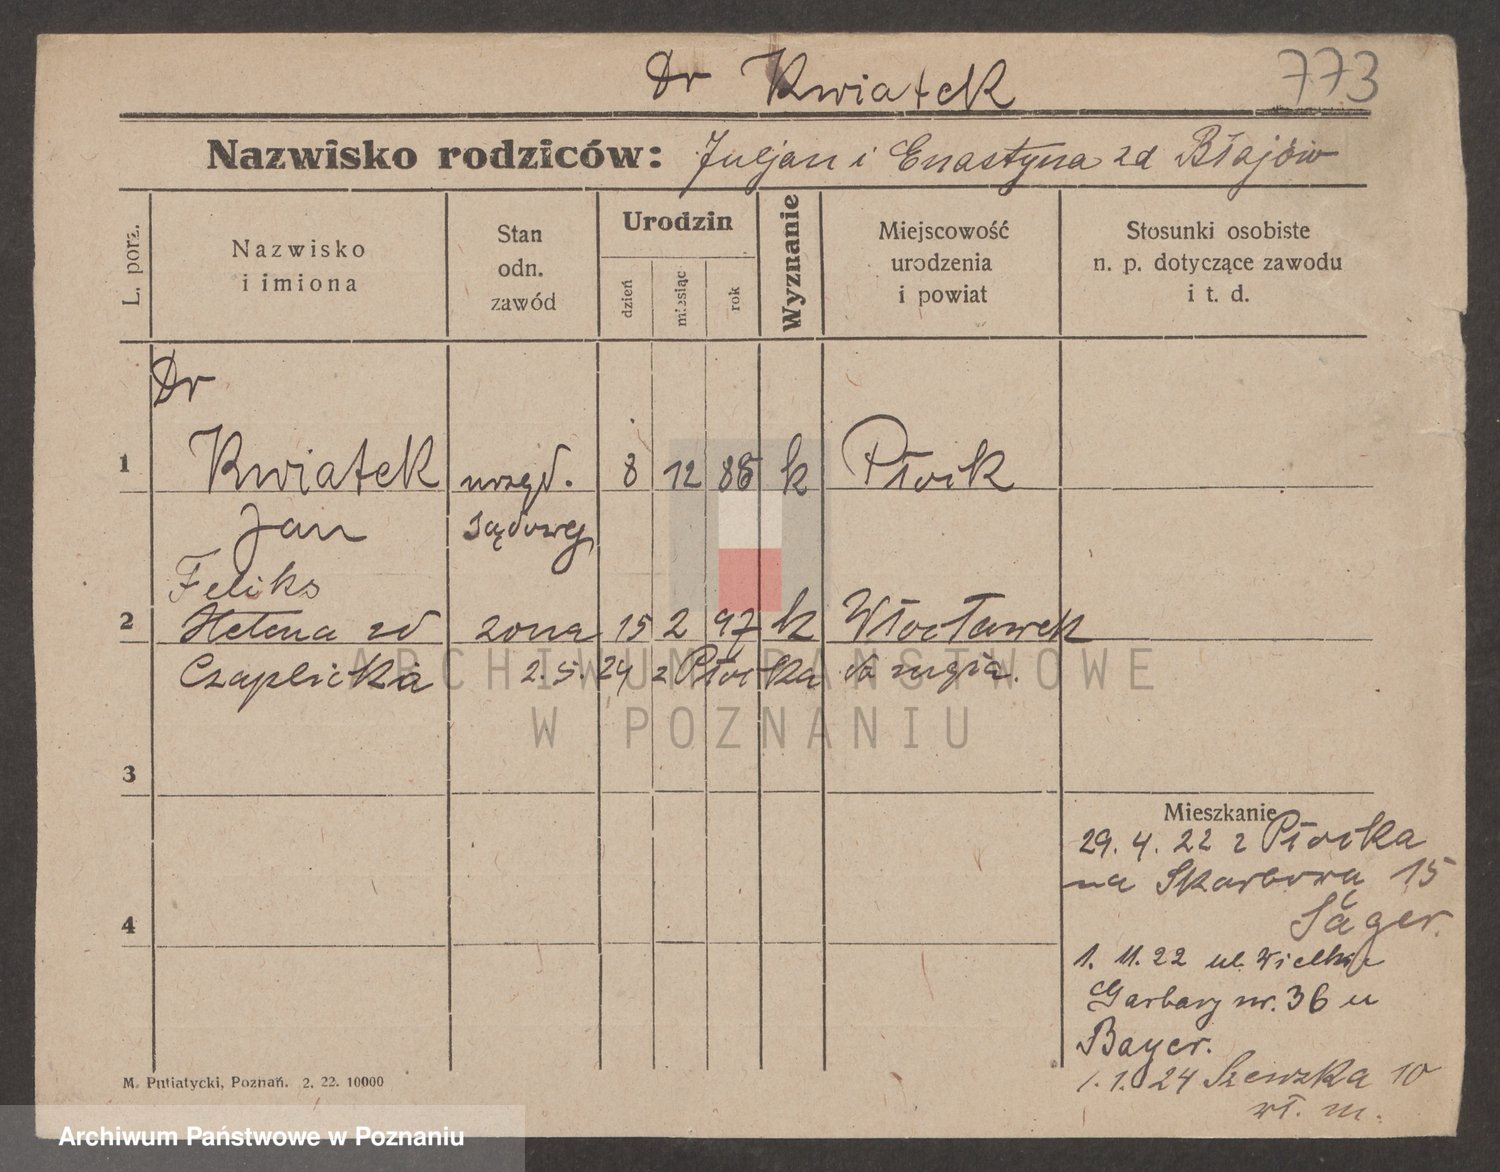 Dr Kwiatek
773
Nazwisko rodziców: Juljan i Enastyna zd Błajów
L. porz.
Nazwisko
i imiona
Stan
odn.
zawód
Urodzin
dzień
miesiąc
rok
Wyznanie
Miejscowość
urodzenia
i powiat
Stosunki osobiste
n. p. dotyczące zawodu
i t. d.
Dr
1 Kwiatek urzęd. 8 12 86 k Płock
Jan sądowy
Feliks
2 Helena zd żona 15 2 97 k Włocławek
Czaplicka 2.5.24 z Płocka do męża.
3
4
Mieszkanie
29. 4. 22 z Płocka
na Skarbowa 15
Jäger.
1. 11. 22 ul. Wielkie
Garbary nr. 36 u
Bayer.
1. 1. 24 Szewska 10
wł. m.
M. Putiatycki, Poznań. 2. 22. 10000
ARCHIWUM PAŃSTWOWE
W POZNANIU
Archiwum Państwowe w Poznaniu